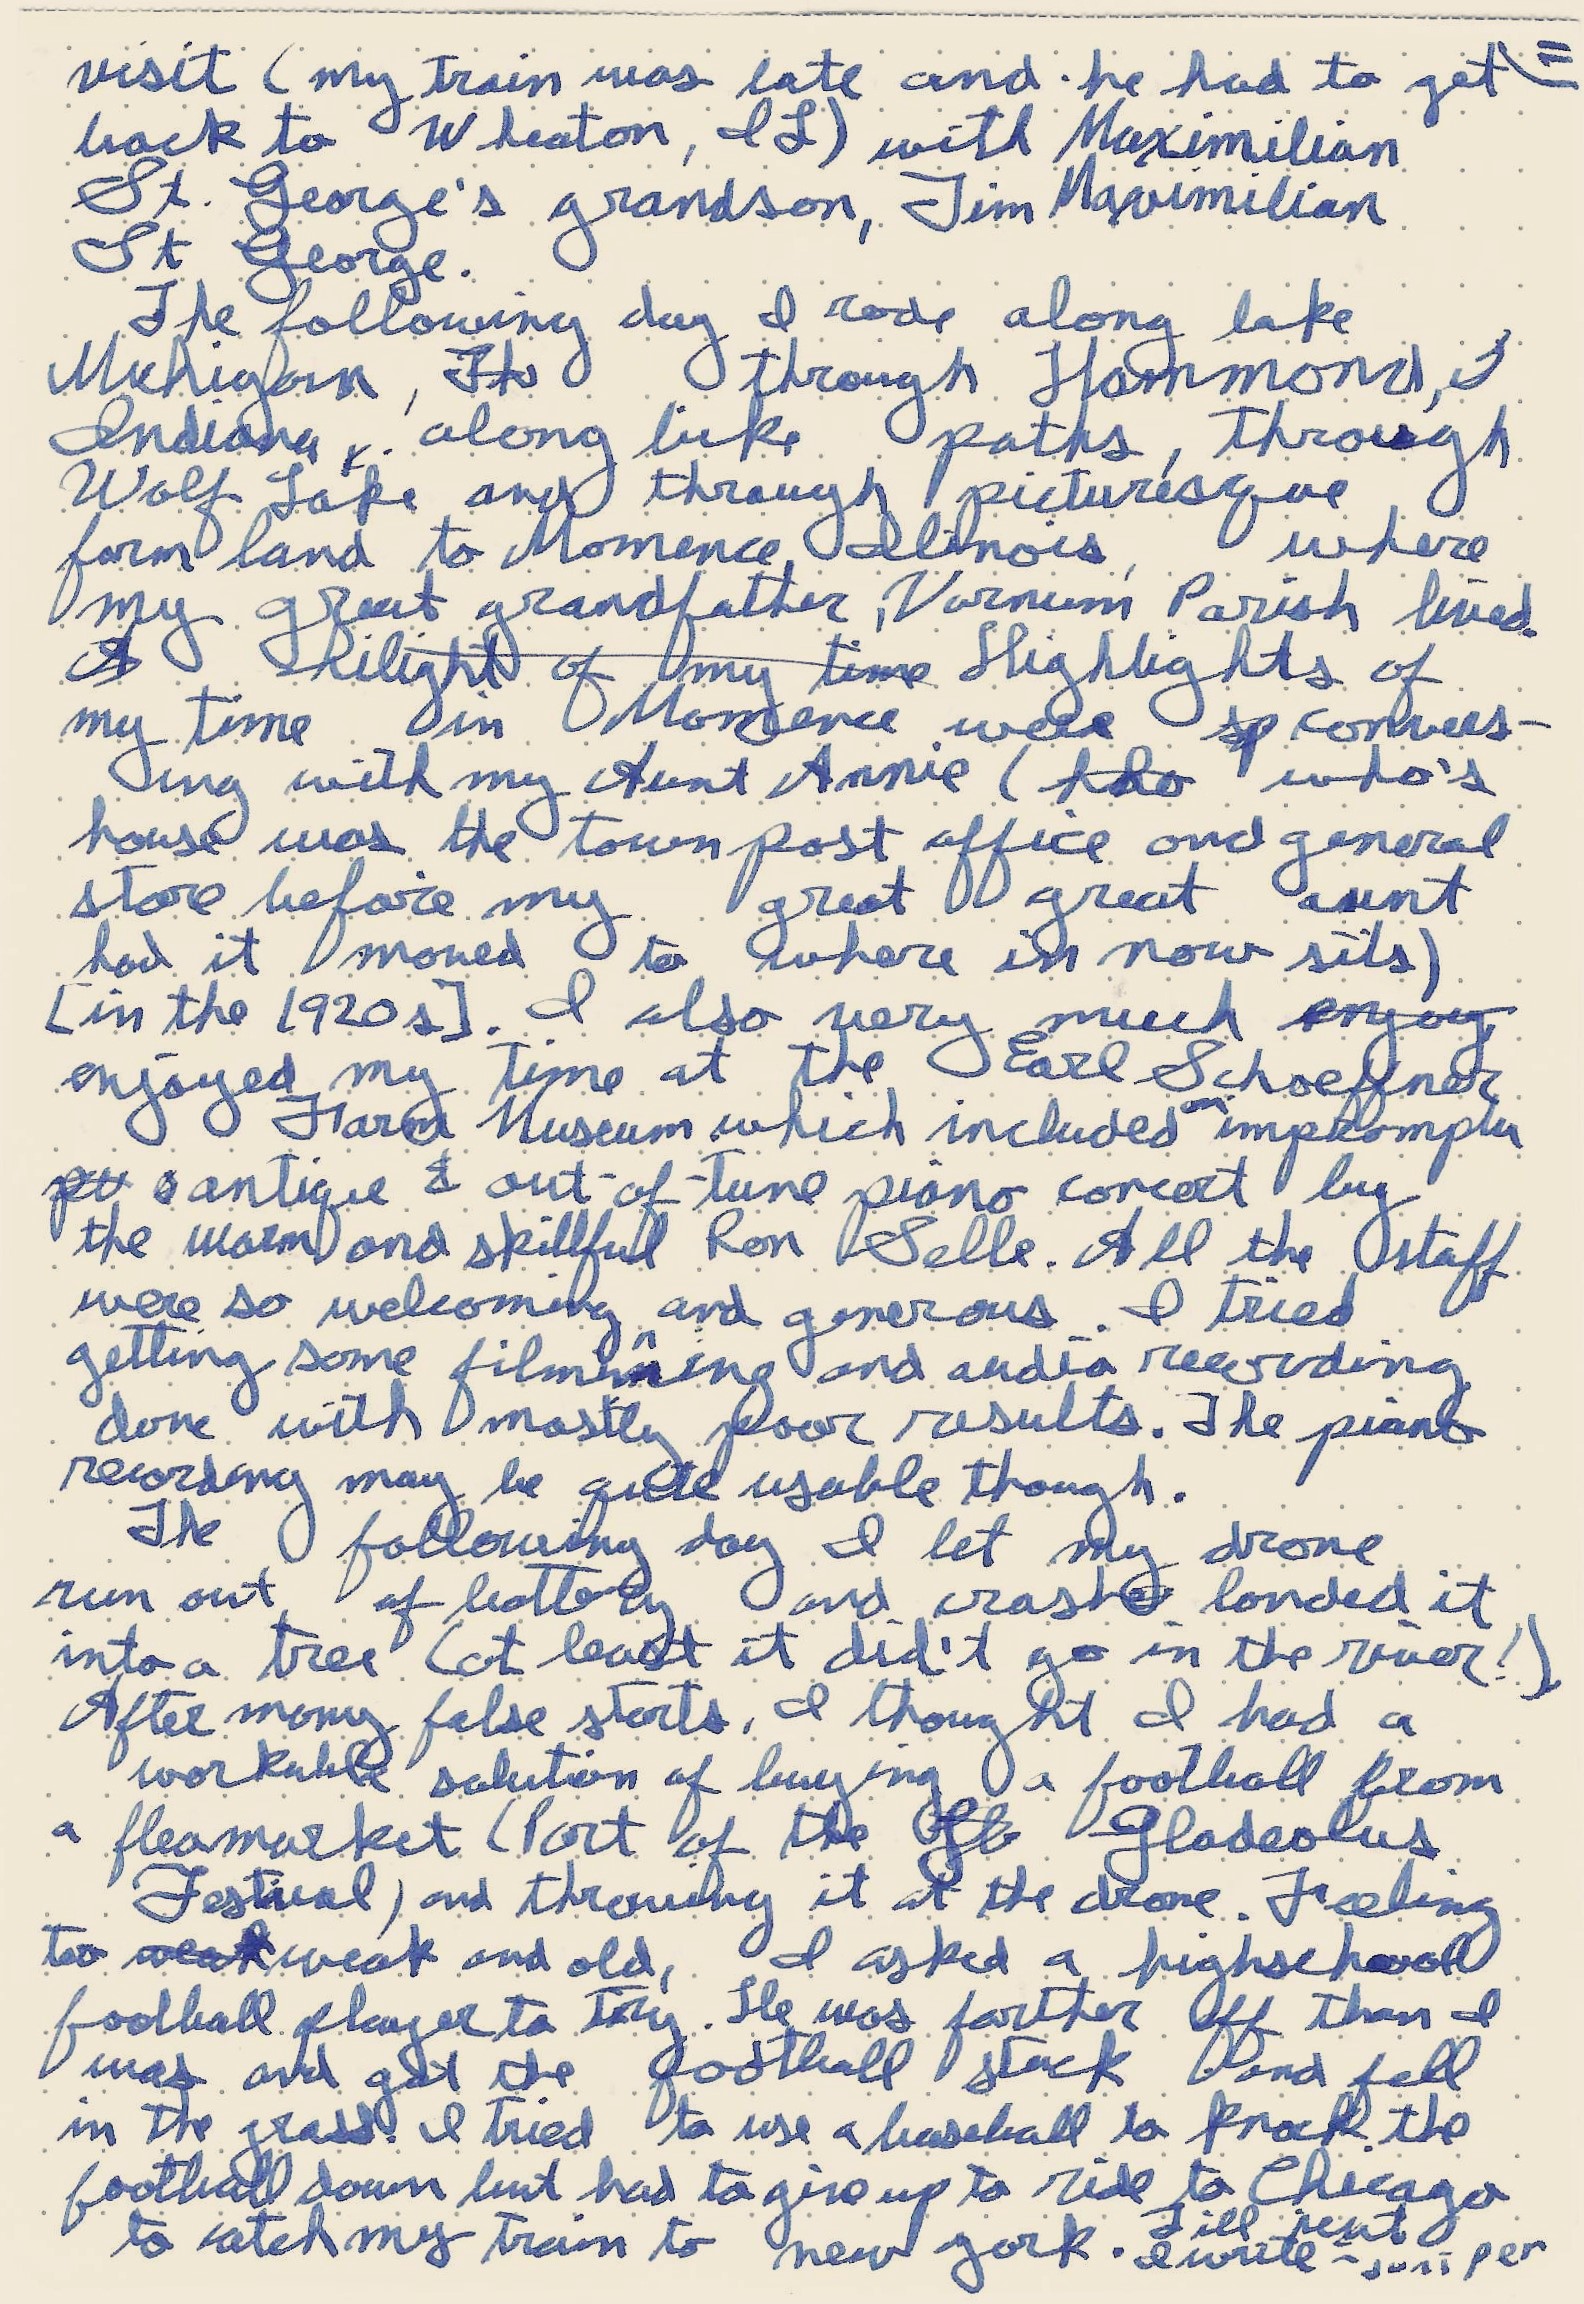 visit (my train was late and he had to get
back to Wheaton, IL) with Maximilian
St. George's grandson, Jim Maximilian
St George.
The following day I rode along lake
Michigan, through Hammond,
Indiana, along bike paths, through
Wolf Lake and through picturesque
farm land to Momence, Illinois, where
my great grandfather, Varnum Parish lived.
A hilight of my time Highlights of
my time in Momence were sp convers-
ing with my Aunt Annie (who's
house was the town post office and general
store before my great great aunt
had it moved to where in now sits)
[in the 1920s]. I also very much enjoy
enjoyed my time at the Earl Schoeffner
Farm Museum which included an impromptu
antique & out-of-tune piano concert by
the warm and skillful Ron Selle. All the staff
were so welcoming and generous. I tried
getting some filming and audio recording
done with mostly poor results. The piano
recording may be quite usable though.
The following day I let my drone
run out of battery and crash landed it
into a tree (at least it did't go in the river!)
After many false starts, I thought I had a
workable solution of buying a football from
a fleamarket (Part of the Gladeolus
Festival) and throwing it at the drone. Feeling
too weak weak and old, I asked a highschool
football player to try. He was farther off than I
was and got the football stuck and fell
in the grass. I tried to use a baseball to knock the
football down but had to give up to ride to Chicago
to catch my train to new york. Till next
I write - juniper